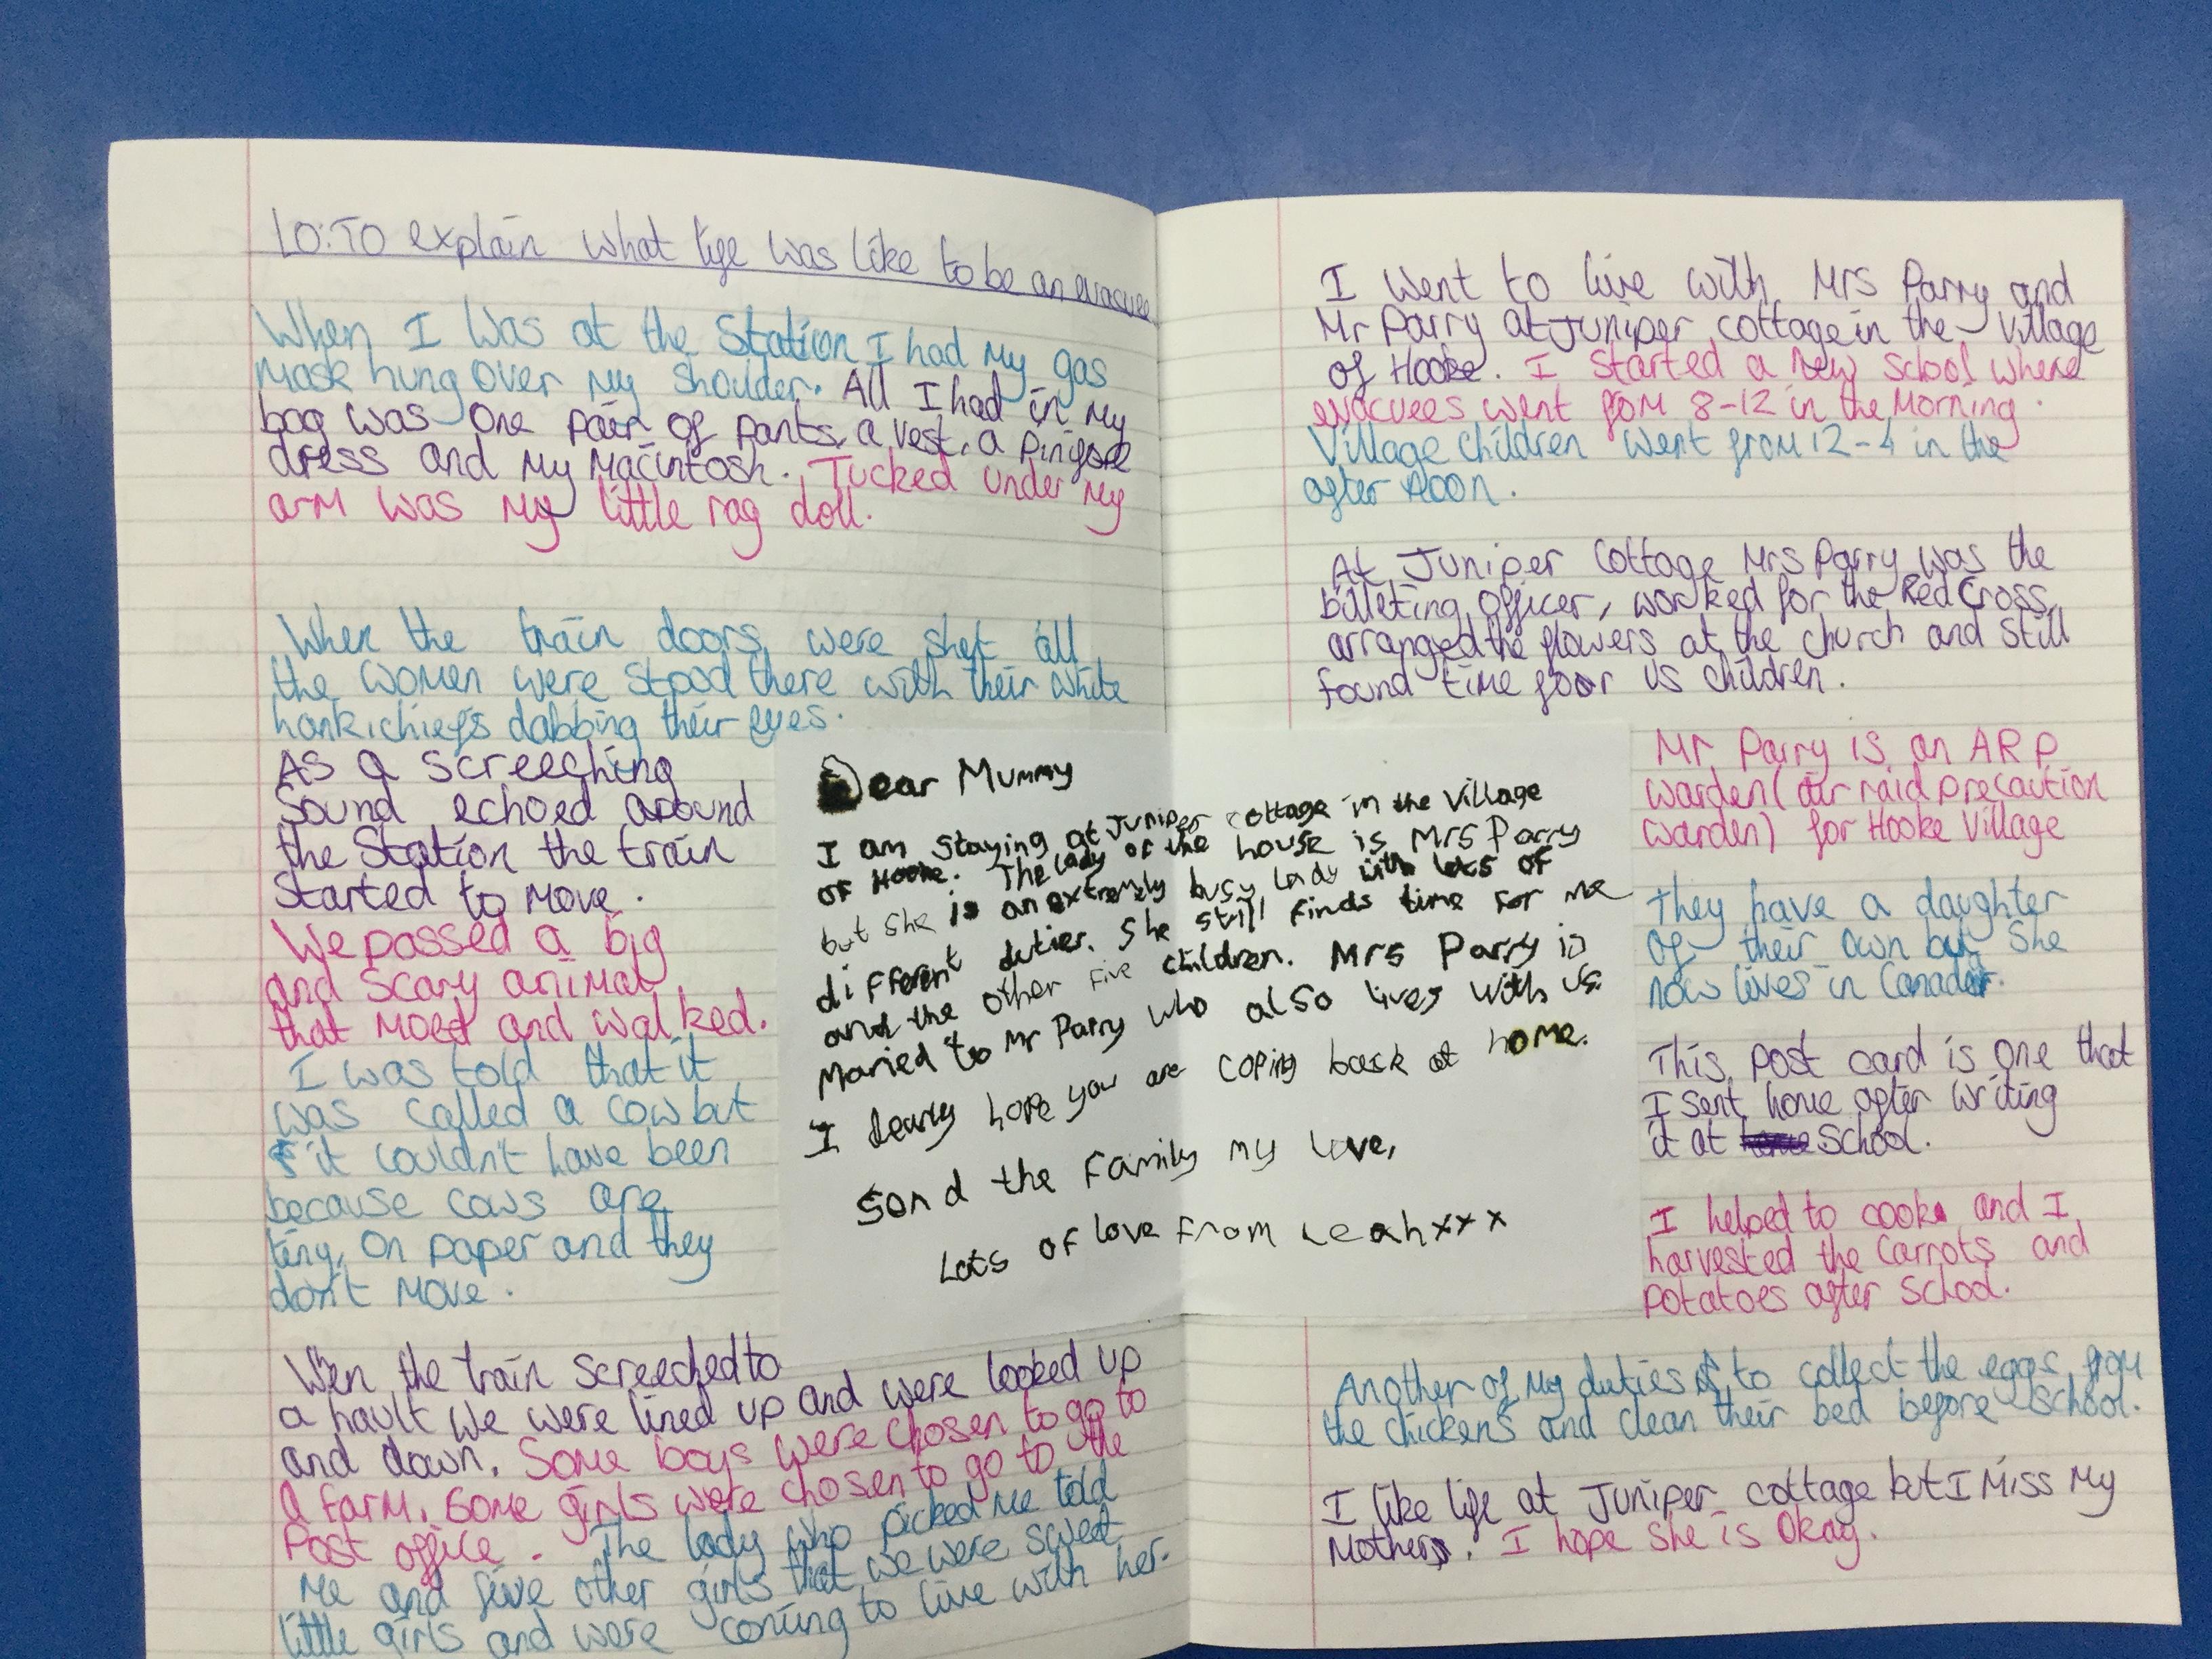 LO: To explain what life was like to be an evacuee
When I was at the Station I had my gas
mask hung over my shoulder. All I had in my
bag was one pair of pants, a vest, a pinifore
dress and my Macintosh. Tucked under my
arm was my little rag doll.
When the train doors were shet all
the women were stood there with their white
hankichiefs dabbing their eyes.
As a screeching
sound echoed around
the station the train
started to move.
We passed a big
and scary animal
that moed and walked.
I was told that it
was called a cow but
it couldn't have been
because cows are
tiny, on paper and they
don't move.
Wen the train screeched to
a hault we were lined up and were looked up
and down. Some boys were chosen to go to
a farm. Some girls were chosen to go to the
Post office. The lady who picked me told
me and five other girls that we were sweet
little girls and were coming to live with her.
Dear Mummy
I am staying at Juniper cottage in the Village
of Hooke. The lady of the house is Mrs Parry
but she is an extremely busy lady with lots of
different duties. She still finds time for me
and the other five children. Mrs Parry is
Maried to Mr Parry who also lives with us.
I dearly hope you are coping back at home.
Send the family my love,
Lots of love from Leah xxx
I went to live with Mrs Parry and
Mr Parry at Juniper cottage in the village
of Hooke. I started a new school where
evacuees went from 8-12 in the morning.
Village children went from 12-4 in the
after noon.
At Juniper Cottage Mrs Parry was the
billeting officer, worked for the Red Cross,
arranged the flowers at the church and still
found time for us children.
Mr Parry is an ARP
warden (air raid precaution
warden) for Hooke Village
They have a daughter
of their own but she
now lives in Canada.
This post card is one that
I sent home after writing
it at school.
I helped to cook and I
harvested the carrots and
potatoes after school.
Another of my duties is to collect the eggs from
the chickens and clean their bed before school.
I like life at Juniper cottage but I miss my
Mother. I hope she is okay.